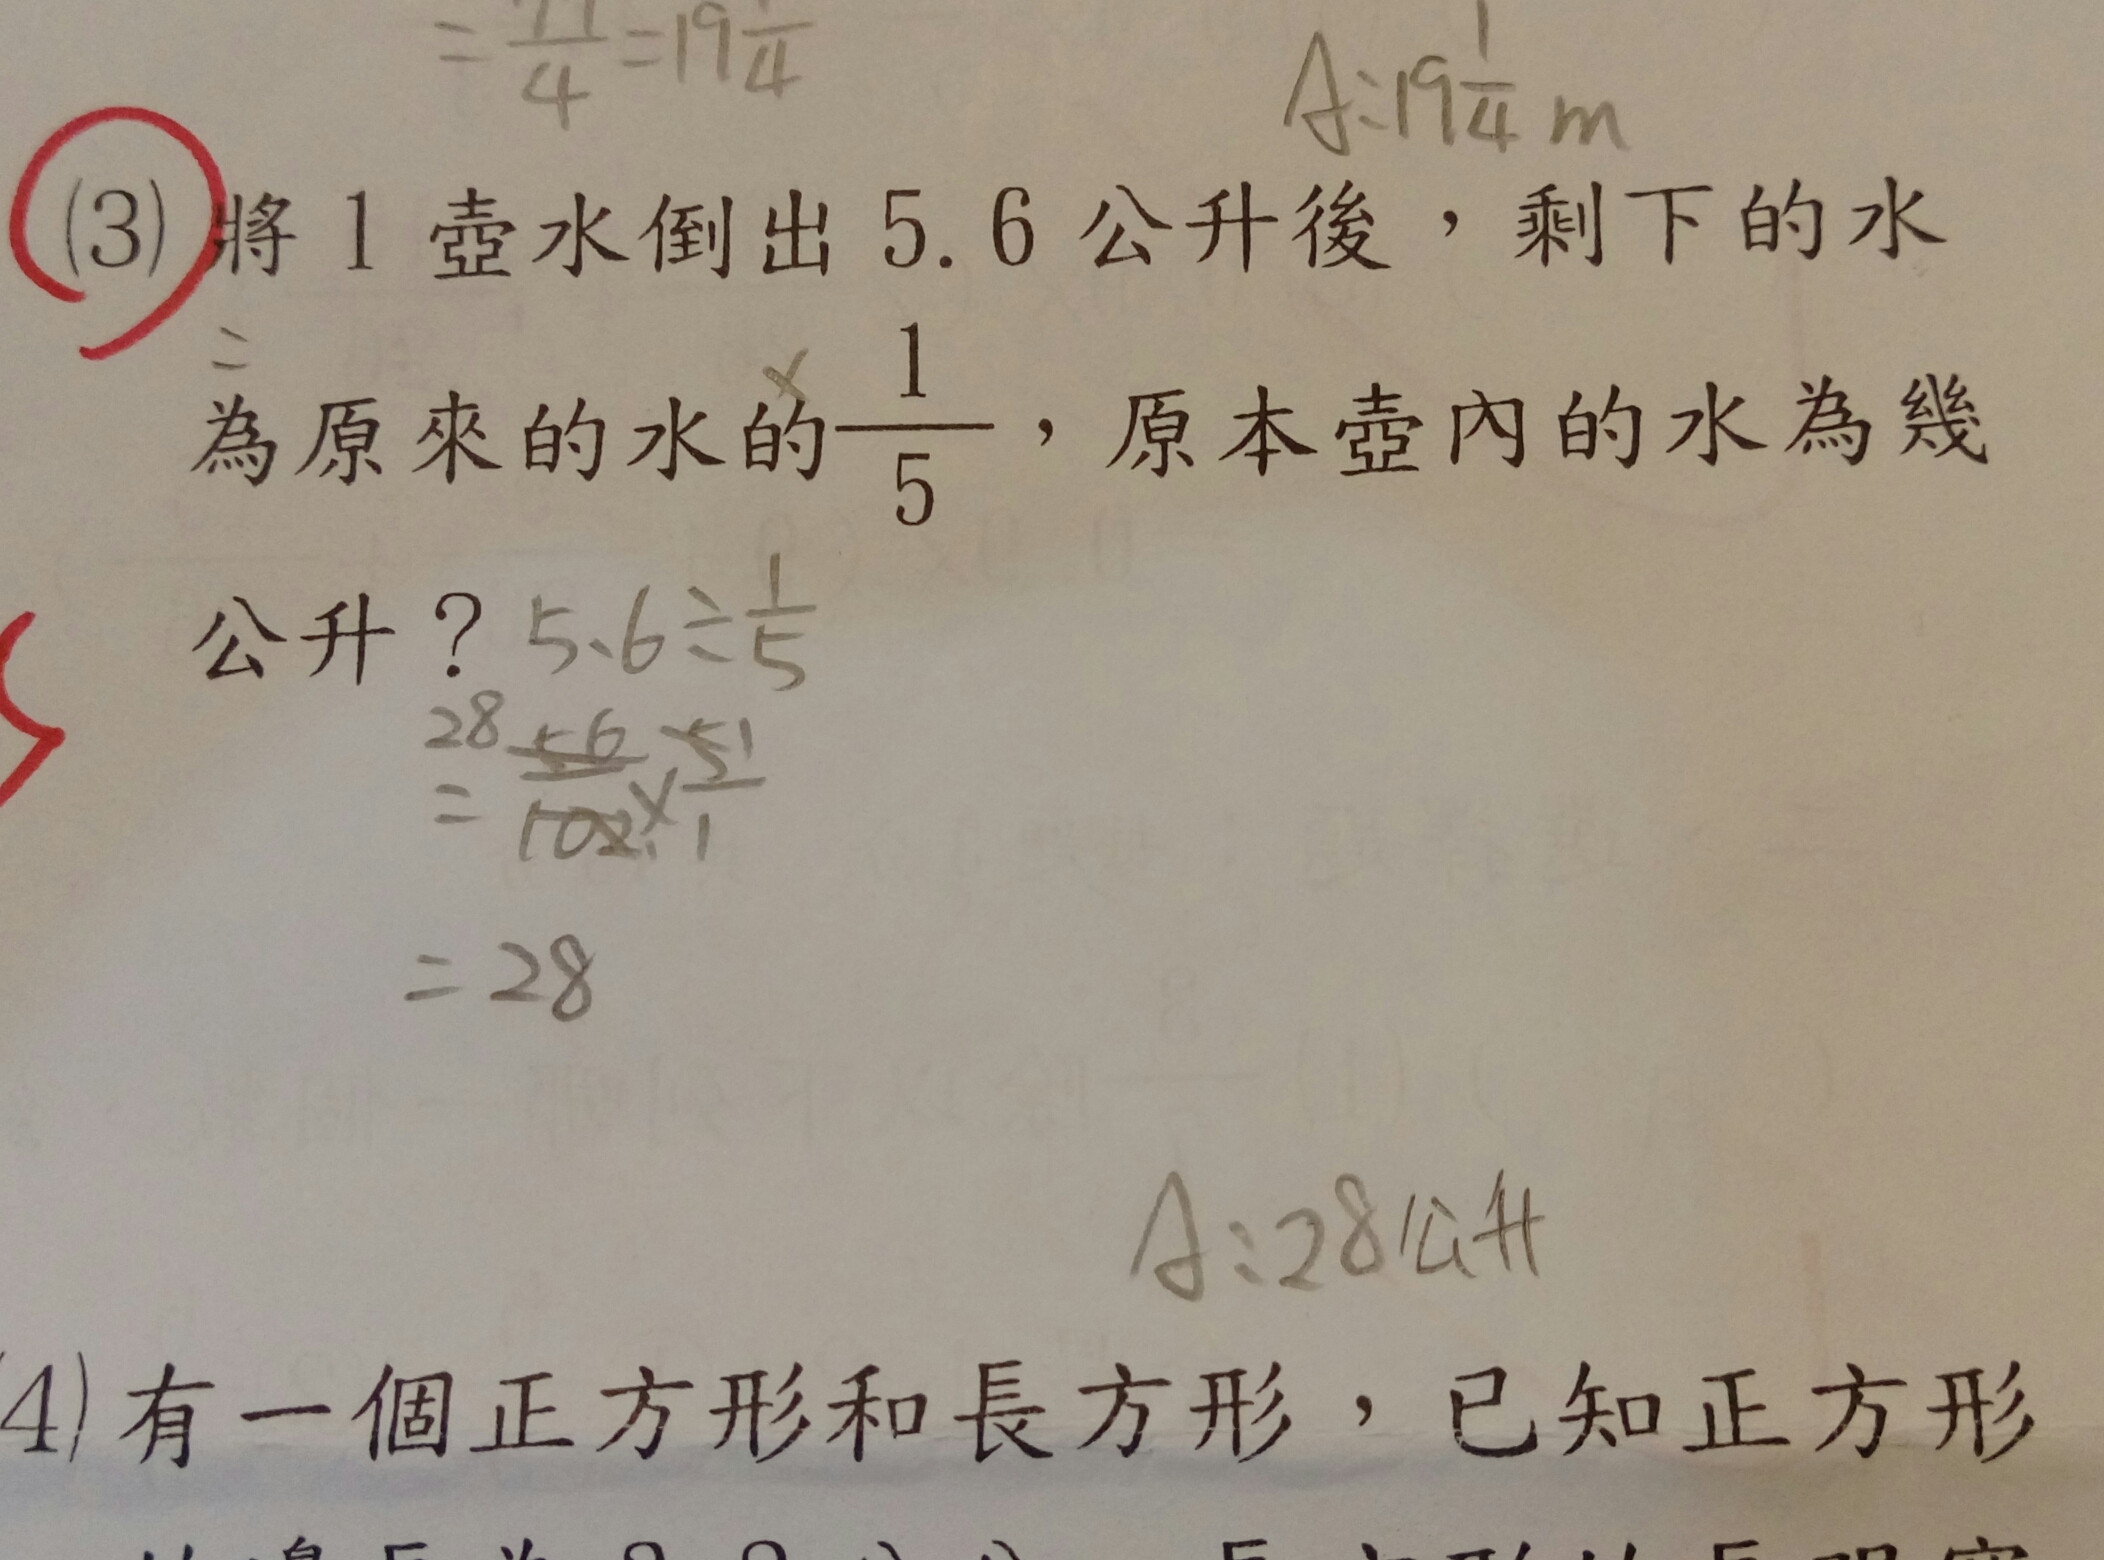 = 77/4 = 19 1/4
A:19 1/4 m
(3) 將 1 壺水倒出 5.6 公升後，剩下的水
= ×
為原來的水的 1/5，原本壺內的水為幾
公升？ 5.6÷1/5
28 56 51
= 102 × 1
= 28
A:28公升
(4) 有一個正方形和長方形，已知正方形